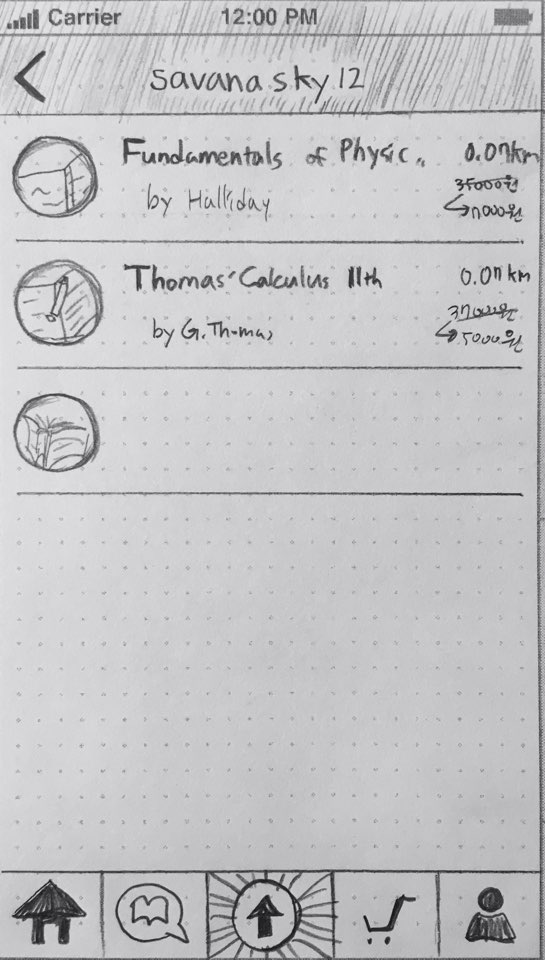 Carrier
12:00 PM
savanasky12
Fundamentals of Physic..
0.07km
by Halliday
35000원
7000원
Thomas' Calculus 11th
0.07km
by G.Thomas
37000원
5000원